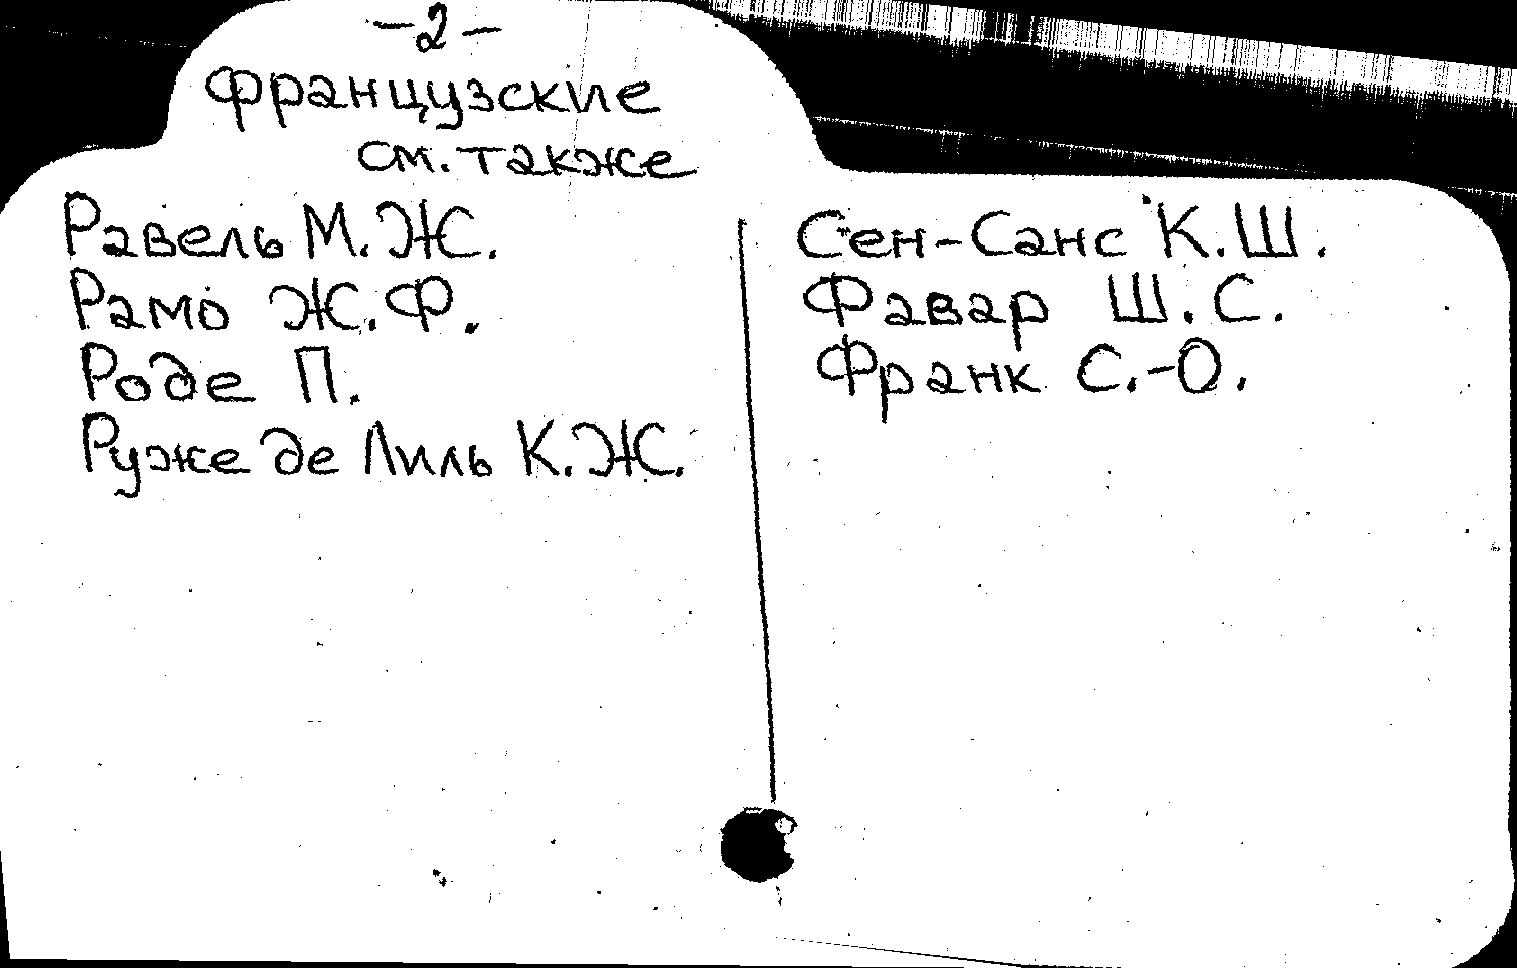 -2-
французские
см. также
Равель М.Ж.
Рамо Ж.Ф.
Роде П.
Руже де Лиль К.Ж.
Сен-Санс К.Ш.
Фавар Ш.С.
Франк С.-О.